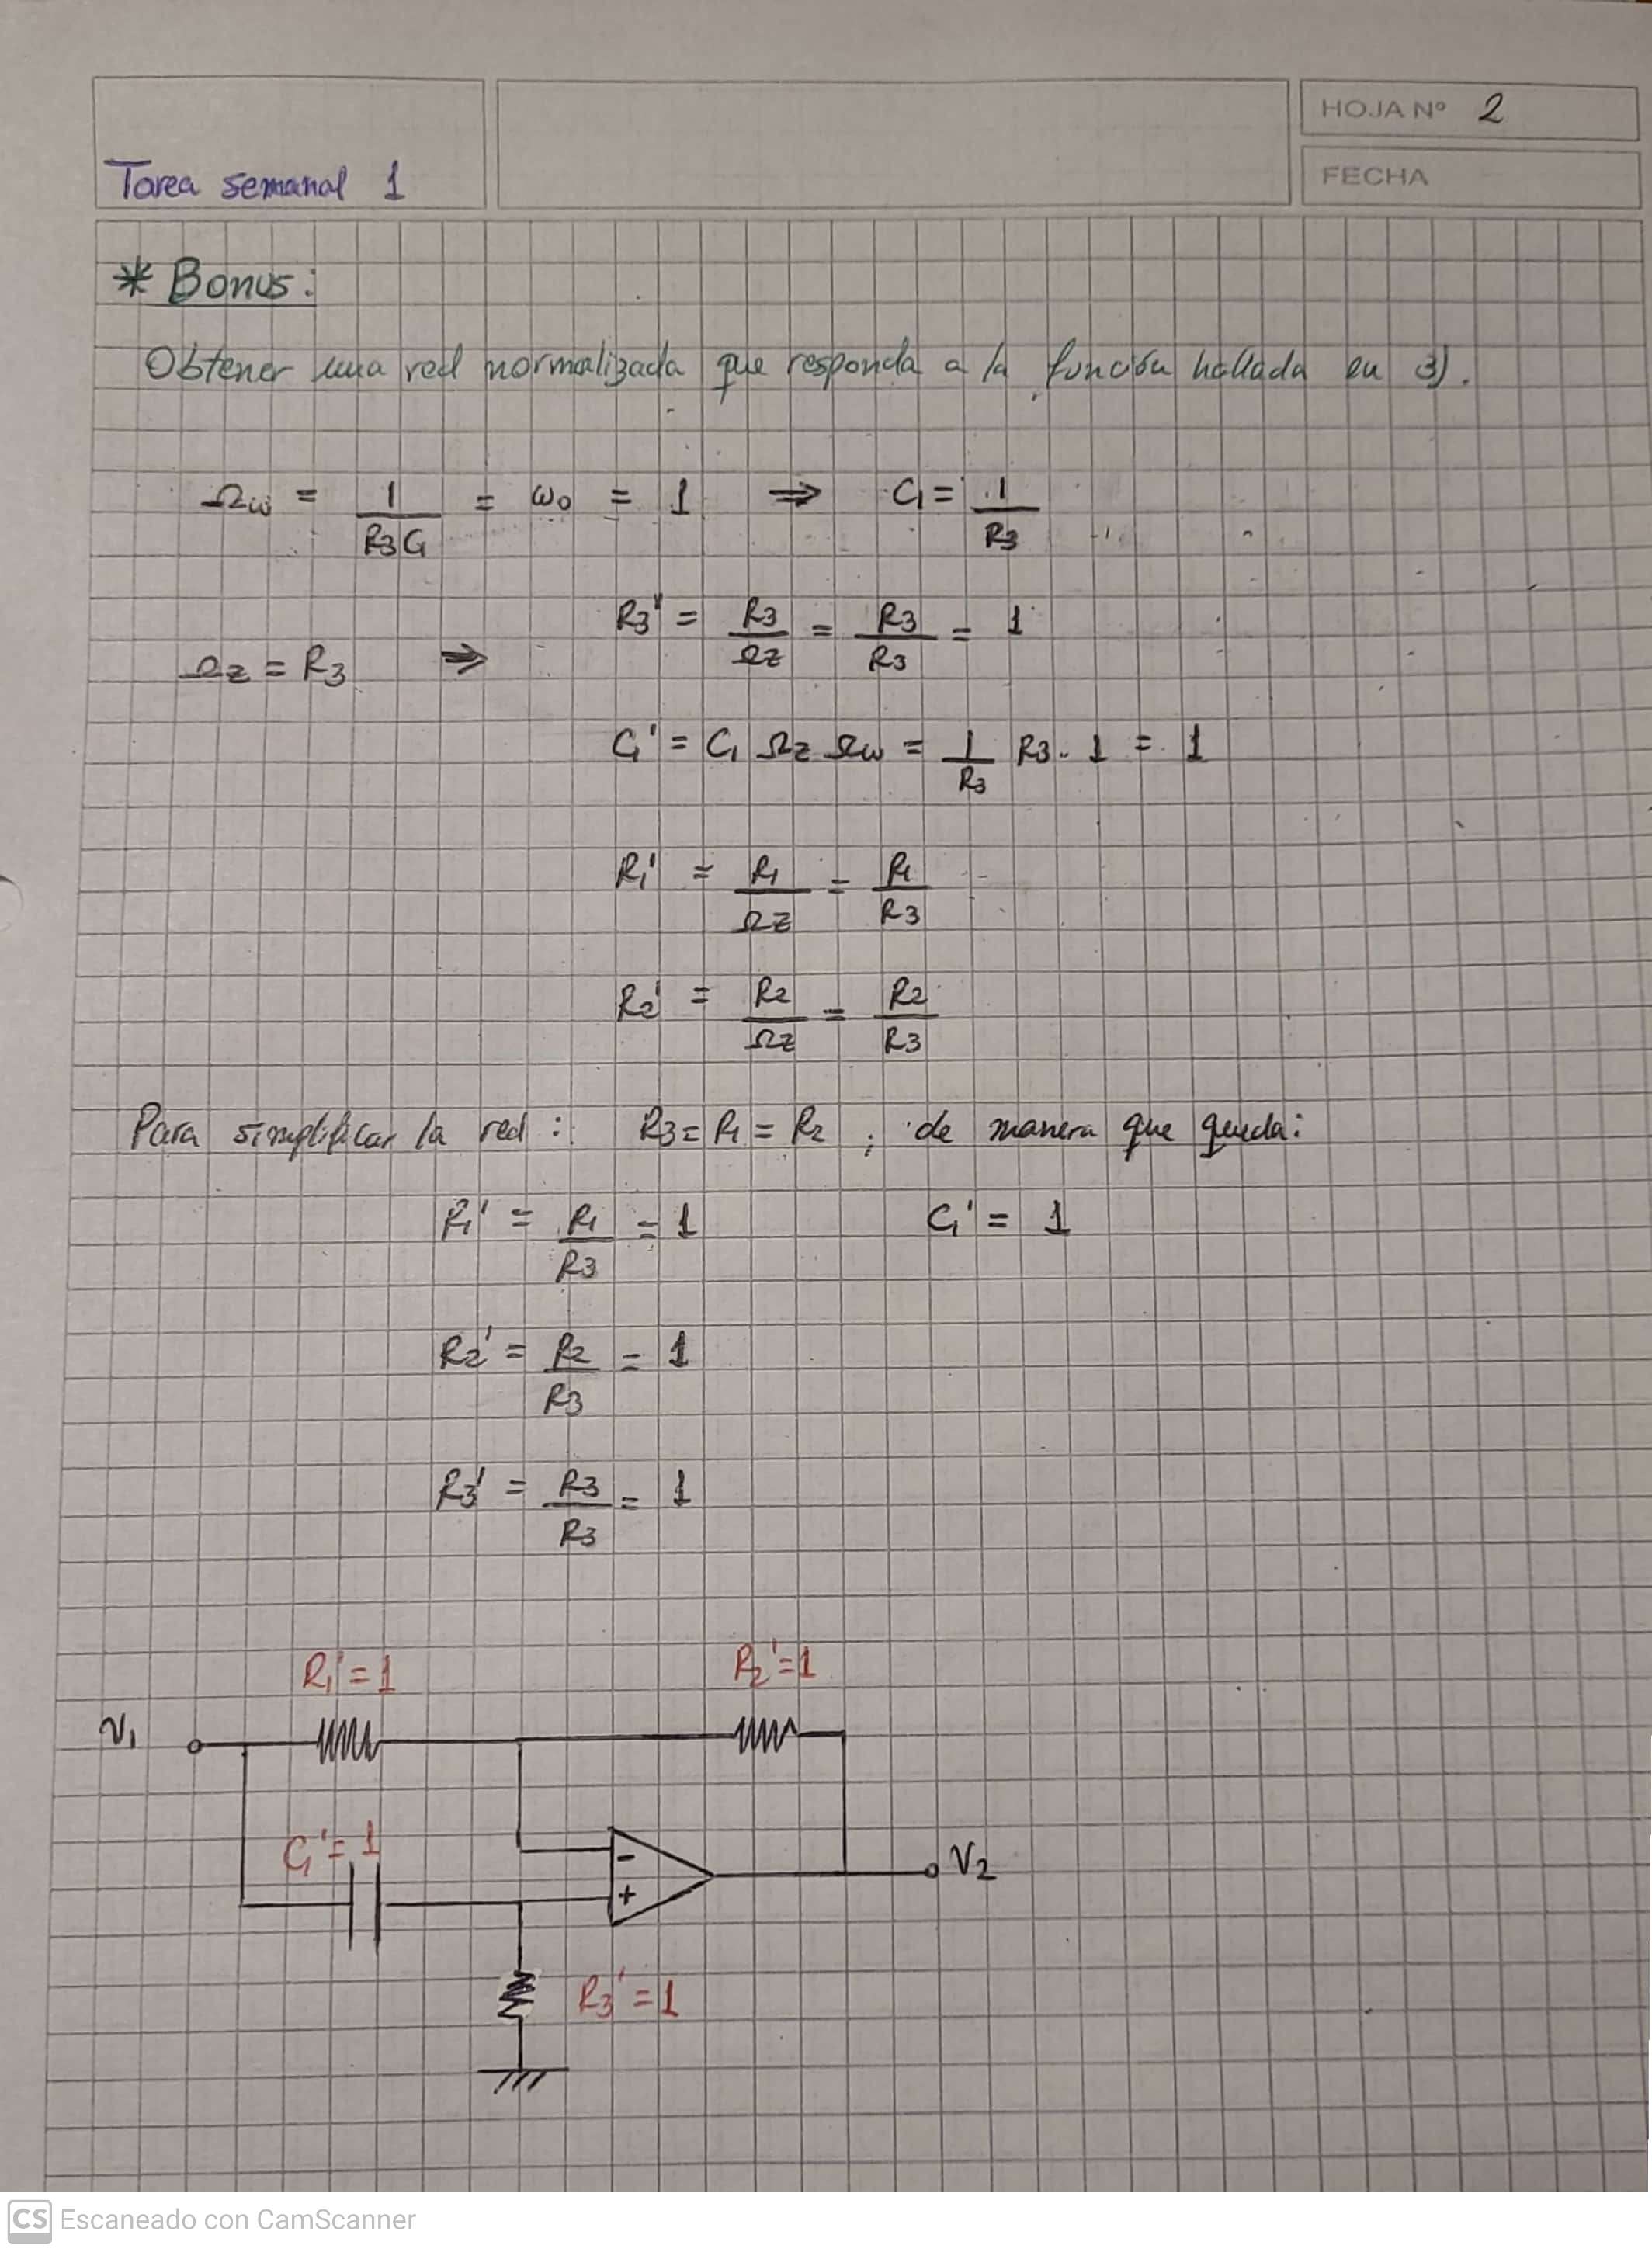 HOJA Nº 2
Tarea semanal 1
FECHA
* Bonus:
Obtener una red normalizada que responda a la función hallada en 3).
Ωω = 1 / R3C1 = ω0 = 1 ⇒ C1 = 1 / R3
Ωz = R3 ⇒ R3' = R3 / Ωz = R3 / R3 = 1
C1' = C1 Ωz Ωω = 1 / R3 R3 . 1 = 1
R1' = R1 / Ωz = R1 / R3
R2' = R2 / Ωz = R2 / R3
Para simplificar la red: R3 = R1 = R2, de manera que queda:
R1' = R1 / R3 = 1 C1' = 1
R2' = R2 / R3 = 1
R3' = R3 / R3 = 1
R1' = 1 R2' = 1
V1
C1' = 1
- V2
+
R3' = 1
CS Escaneado con CamScanner